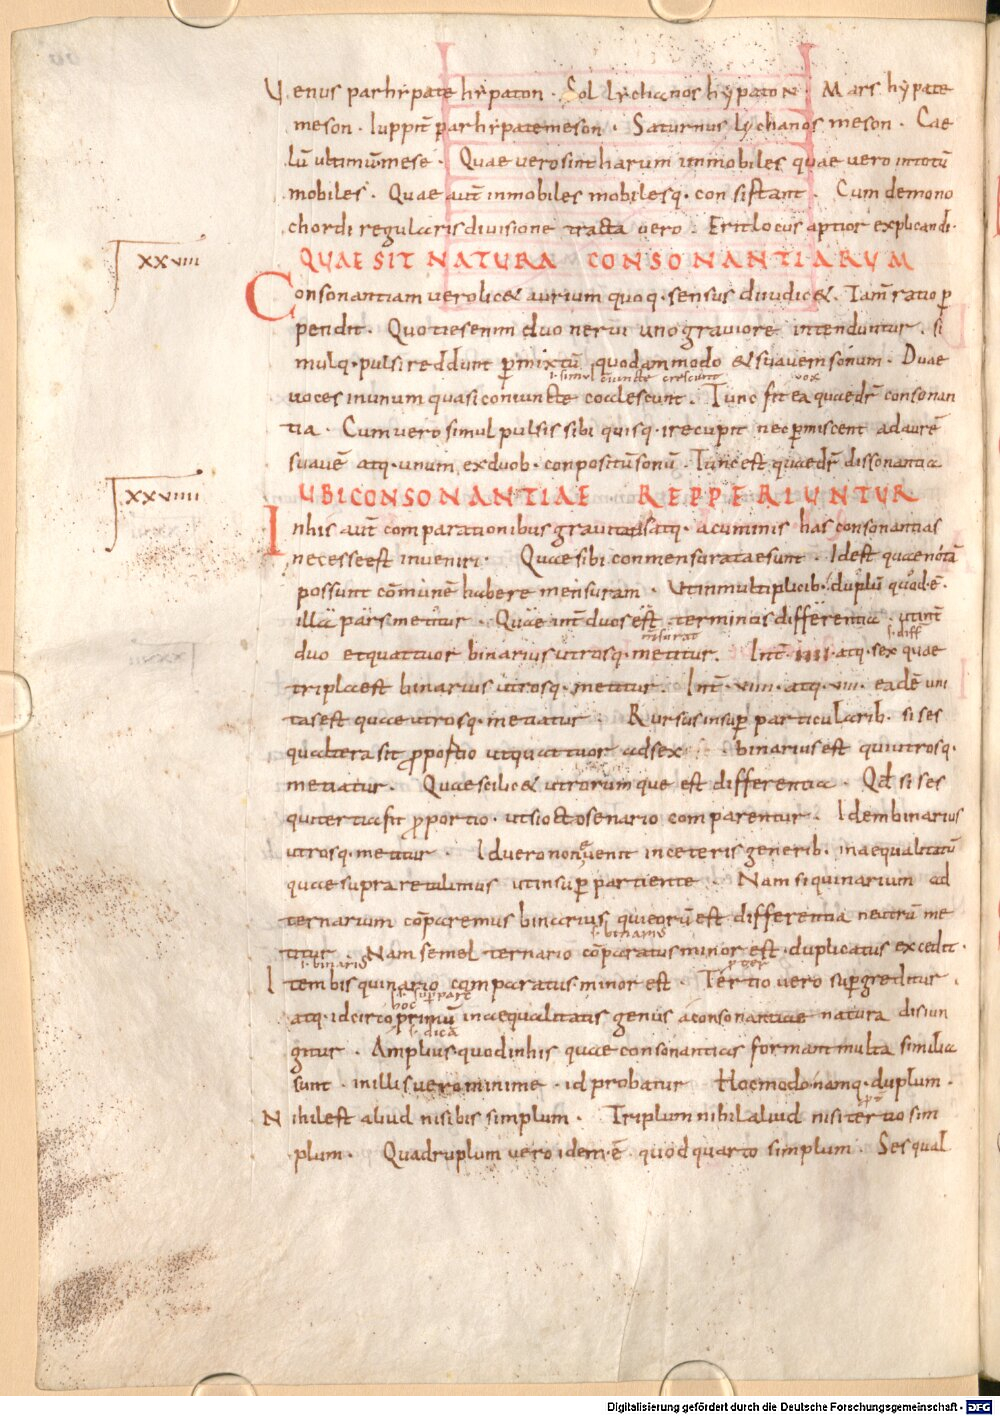 Venus parhypate hypaton · Sol lychanos hypaton · Mars hypate
meson · Iuppit̄ parhypatemeson · Saturnus lychanos meson · Cae
lū ultimū mese · Quae vero sint harum inmobiles quae vero intotū
mobiles · Quae aut̄ inmobiles mobilesq· consistant · Cum de mono
chordi regularis divisione tracta vero · Erit locus aptior explicandi·
XXVIII QUAE SIT NATURA CONSONANTIARUM
Consonantiam vero lic& aurium quoq· sensus diiudic& · Tam̄ ratio p̄
pendit · Quotiesenim duo nervi uno graviore intenduntur · si
mulq· pulsi reddunt p̄mixtū quodammodo & suavem sonum · Duae
·i·simul cunctae crescunt vox
voces inunum quasi coniunctae coalescunt · Tunc fit ea quaedr̄ consonan
tia · Cum vero simul pulsis sibi quisq· ire cupit nec p̄miscent ad aurē
suavē atq· unum ex duob· conpositū sonū · Tunc est quaedr̄ dissonantia
XXVIIII UBI CONSONANTIAE REPPERIUNTUR
Inhis aut̄ comparationibus gravitatis atq· acuminis has consonantias
necesse est inveniri · Quae sibi conmensuratae sunt · Id est quae notā
possunt cōmunē habere mensuram · Ut in multiplicib· duplū quod·ē·
illa pars metitur · Quae int̄ duos est terminos differentia · ut int̄
mensurat ·i·diff̄
duo et quattuor binarius utrosq· metitur · Int̄ IIII · atq· sex quae
tripla est binarius utrosq· metitur · Int̄ · VIIII · atq· VIII · eadē uni
tas est quae utrosq· metiatur · Rursus insup̄ particularib· si ses
qualtera sit p̄portio ut quattuor ad sex · binarius est qui utrosq·
metiatur · Quae scilic& utrorumque est differentia · Qd̄ si ses
quitertia fit p̄portio · ut si octo senario comparentur · Idem binarius
utrosq· metitur · Id vero non evenit in ceteris generib· inaequalitatū
quae supra retulimus ut insup̄ partiente · Nam si quinarium ad
ternarium cōparemus binarius qui eorū est differentia neutrū me
·i·binariꝰ
titur · Nam semel ternario cōparatus minor est · duplicatus excedit ·
·i·binariꝰ
Item bis quinario comparatus minor est · Tertio vero sup̄greditur ·
hoc ·i·suppart
atq· idcirco primū inaequalitatis genus a consonantiae natura disiun
·i·dicā
gitur · Amplius quod in his quae consonantias formant multa similia
sunt · in illis vero minime · id probatur Hoc modo namq· duplum ·
Nihil est aliud nisi bis simplum · Triplum nihil aliud nisi tertio sim
plum · Quadruplum vero idem·ē· quod quarto simplum · Sesqual
Digitalisierung gefördert durch die Deutsche Forschungsgemeinschaft - DFG